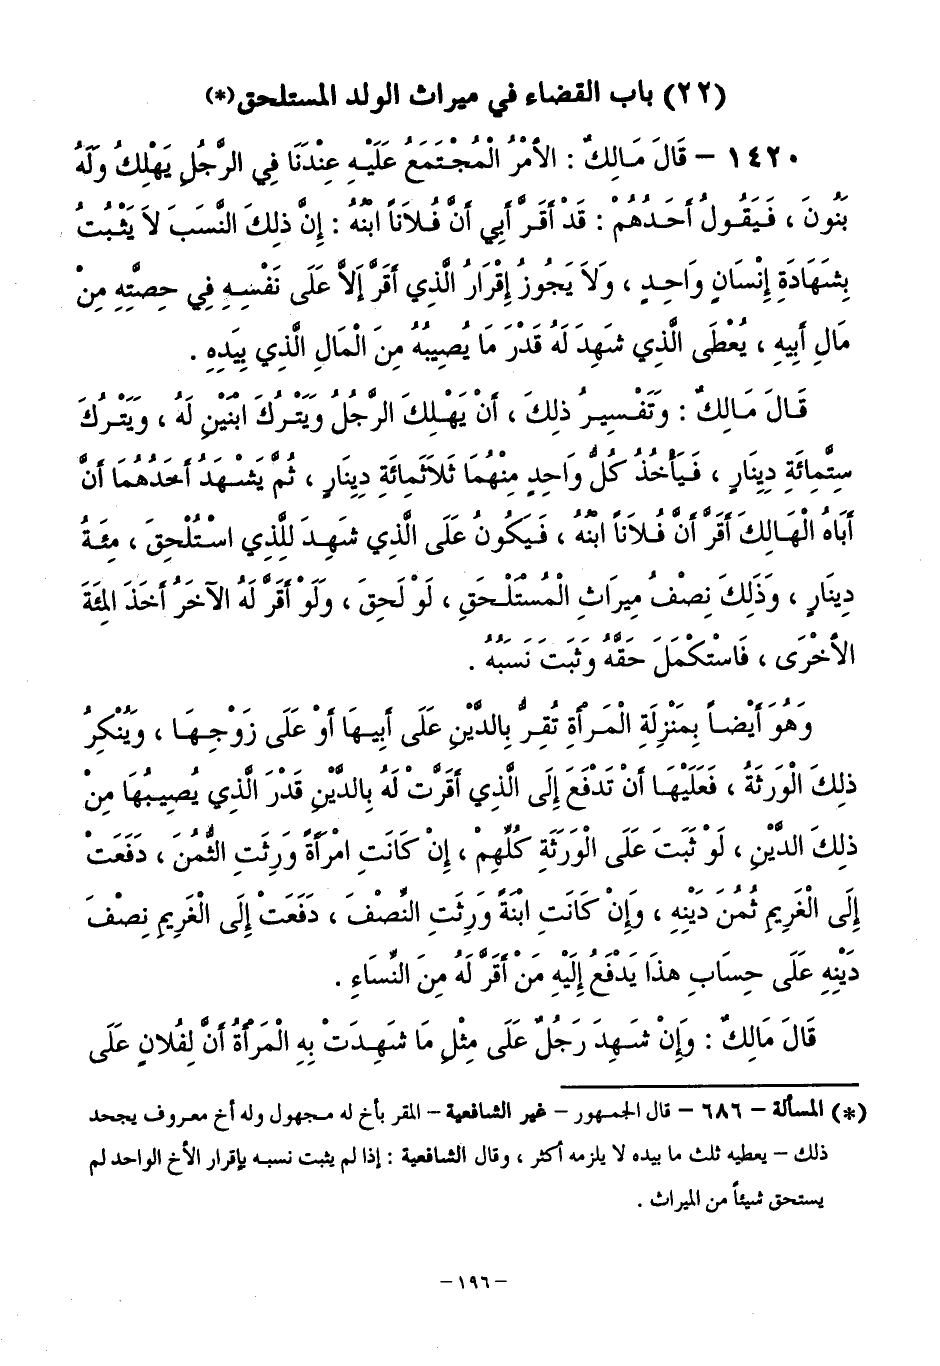 (٢٢) باب القضاء في ميراث الولد المستلحق(*)
١٤٢٠ – قَالَ مَالِكٌ : الأَمْرُ الْمُجْتَمَعُ عَلَيْهِ عِنْدَنَا فِي الرَّجُلِ يَهْلِكُ وَلَهُ
بَنُونَ ، فَيَقُولُ أَحَدُهُمْ : قَدْ أَقَرَّ أَبِي أَنَّ فُلَاناً ابْنُهُ : إِنَّ ذلِكَ النَّسَبَ لاَ يَثْبُتُ
بِشَهَادَةِ إِنْسَانٍ وَاحِدٍ ، وَلاَ يَجُوزُ إِقْرَارُ الَّذِي أَقَرَّ إِلاَّ عَلَى نَفْسِهِ فِي حِصَّتِهِ مِنْ
مَالِ أَبِيهِ ، يُعْطَى الَّذِي شَهِدَ لَهُ قَدْرَ مَا يُصِيبُهُ مِنَ الْمَالِ الَّذِي بِيَدِهِ .
قَالَ مَالِكٌ : وَتَفْسِيرُ ذلِكَ ، أَنْ يَهْلِكَ الرَّجُلُ وَيَتْرُكَ ابْنَيْنِ لَهُ ، وَيَتْرُكَ
سِتَّمِائَةِ دِينَارٍ ، فَيَأْخُذُ كُلُّ وَاحِدٍ مِنْهُمَا ثَلَاثَمِائَةِ دِينَارٍ ، ثُمَّ يَشْهَدُ أَحَدُهُمَا أَنَّ
أَبَاهُ الْهَالِكَ أَقَرَّ أَنَّ فُلَاناً ابْنُهُ ، فَيَكُونُ عَلَى الَّذِي شَهِدَ لِلَّذِي اسْتُلْحِقَ ، مِئَةُ
دِينَارٍ ، وَذَلِكَ نِصْفُ مِيرَاثِ الْمُسْتَلْحَقِ ، لَوْ لَحِقَ ، وَلَوْ أَقَرَّ لَهُ الآخَرُ أَخَذَ المِئَةَ
الأُخْرَى ، فَاسْتَكْمَلَ حَقَّهُ وَثَبَتَ نَسَبُهُ .
وَهُوَ أَيْضاً بِمَنْزِلَةِ الْمَرْأَةِ تُقِرُّ بِالدَّيْنِ عَلَى أَبِيهَا أَوْ عَلَى زَوْجِهَا ، وَيُنْكِرُ
ذلِكَ الْوَرَثَةُ ، فَعَلَيْهَا أَنْ تَدْفَعَ إِلَى الَّذِي أَقَرَّتْ لَهُ بِالدَّيْنِ قَدْرَ الَّذِي يُصِيبُهَا مِنْ
ذلِكَ الدَّيْنِ ، لَوْ ثَبَتَ عَلَى الْوَرَثَةِ كُلِّهِمْ ، إِنْ كَانَتِ امْرَأَةً وَرِثَتِ الثُّمُنَ ، دَفَعَتْ
إِلَى الْغَرِيمِ ثُمُنَ دَيْنِهِ ، وَإِنْ كَانَتِ ابْنَةً وَرِثَتِ النِّصْفَ ، دَفَعَتْ إِلَى الْغَرِيمِ نِصْفَ
دَيْنِهِ عَلَى حِسَابِ هذَا يَدْفَعُ إِلَيْهِ مَنْ أَقَرَّ لَهُ مِنَ النِّسَاءِ .
قَالَ مَالِكٌ : وَإِنْ شَهِدَ رَجُلٌ عَلَى مِثْلِ مَا شَهِدَتْ بِهِ الْمَرْأَةُ أَنَّ لِفُلَانٍ عَلَى
(*) المسألة – ٦٨٦ – قال الجمهور – غير الشافعية – المقر بأخ له مجهول وله أخ معروف يجحد
ذلك – يعطيه ثلث ما بيده لا يلزمه أكثر ، وقال الشافعية : إذا لم يثبت نسبه بإقرار الأخ الواحد لم
يستحق شيئاً من الميراث .
– ١٩٦ –